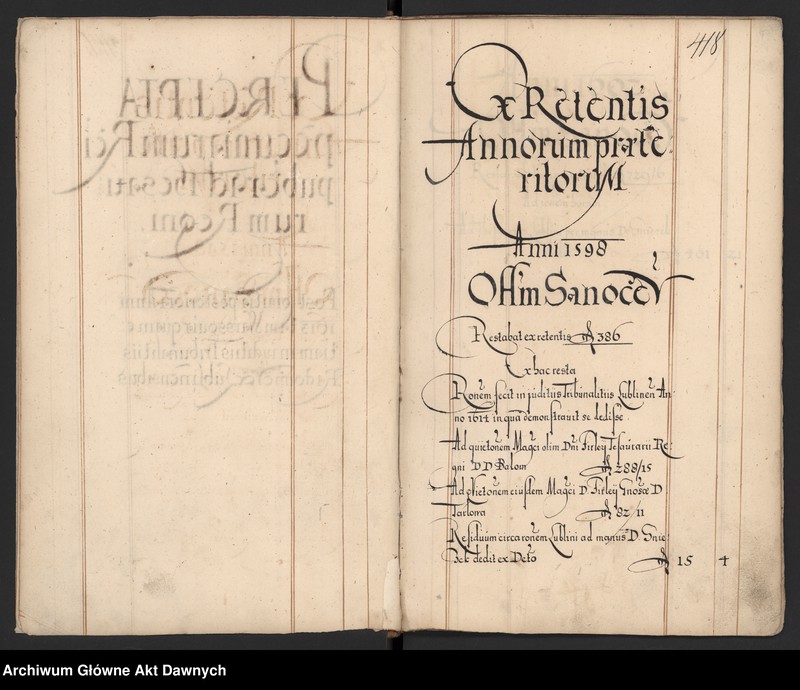 418
Ex Retentis
Annorum præte
ritoruM
Anni 1598
Offm Sanocen
Restabat ex retentis f 386
Ex hac resta
Ronem fecit in juditiis Tribunalitiis Lublinen An
no 1614 in qua demonstravit se dedisse
Ad quietonem Magci olim Dni Firley Tesaurarii Re
gni D D Balow f 288/15
Ad quietonem eiusdem Magci D Firley D
Tarlowa f 82/11
Residuum circa ronem Lublini ad manus D
dedit ex Deto f 15 4
PERCEPTA
pecuniarum Rei
public ad Thesau
rum Regni
Archiwum Główne Akt Dawnych